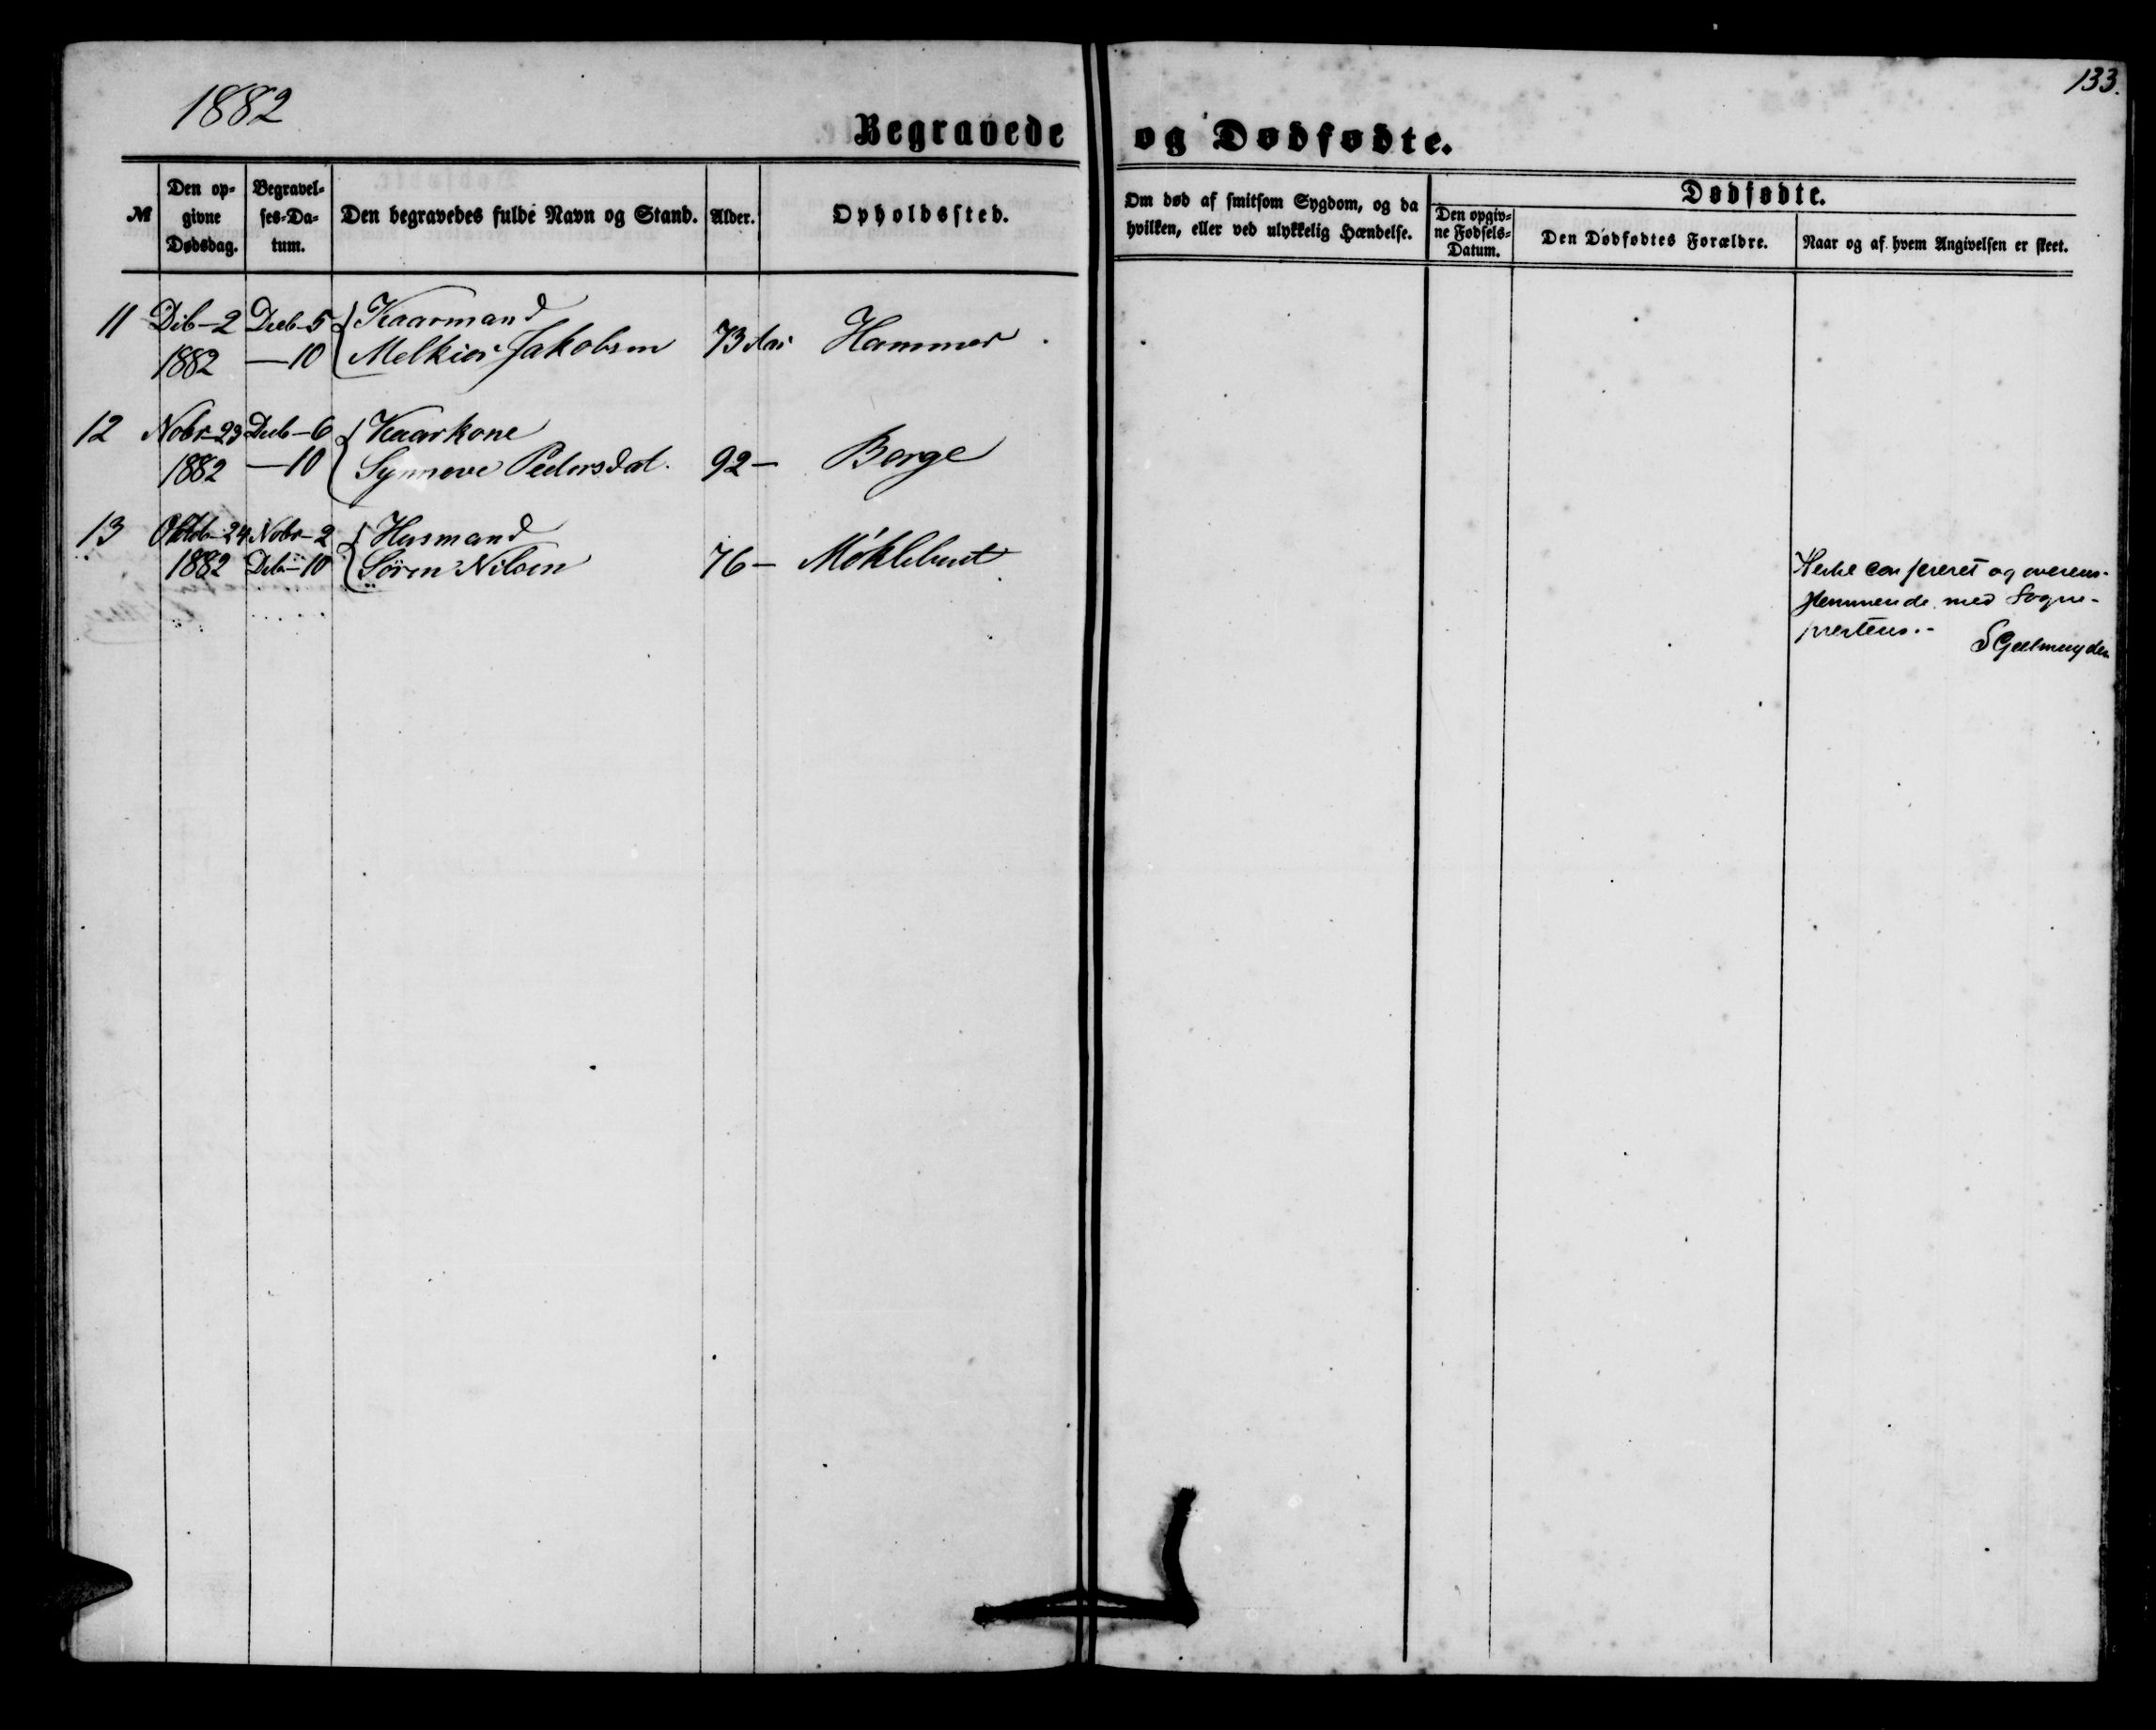 1882
133.
Begravede og Dødfødte.
№
Den op-
givne
Dødsdag.
Begravel-
ses-Da-
tum.
Den begravedes fulde Navn og Stand.
Alder.
Opholdssted.
Om død af smitsom Sygdom, og da
hvilken, eller ved ulykkelig Hændelse.
Dødfødte.
Den opgiv-
ne Fødsels-
Datum.
Den Dødfødtes Forældre.
Naar og af hvem Angivelsen er skeet.
11 Dcb-2 Decb-5 Kaarmand
1882 —10 Melkior Jakobsen 73 Aar Hammer
12 Nobr-23 Decb-6 Kaarkone
1882 —10 Synneve Pedersdat. 92— Borge
13 Oktob-24 Nobr-2 Husmand
1882 Deb-10 Sören Nilsen 76— Møklebust
confereret og overens-
stemmende med Sogne-
prestens.-
S Geelmuyden